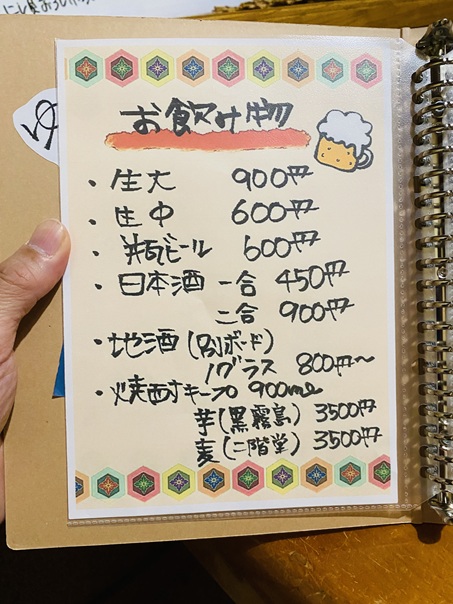 ゆ
お飲け物
・生大 900円
・生中 600円
・瓶ビール 600円
・日本酒 一合 450円
二合 900円
・地酒(別ボード)
1グラス 800円~
・焼酎キープ 900ml
芋(黒霧島) 3500円
麦(二階堂) 3500円